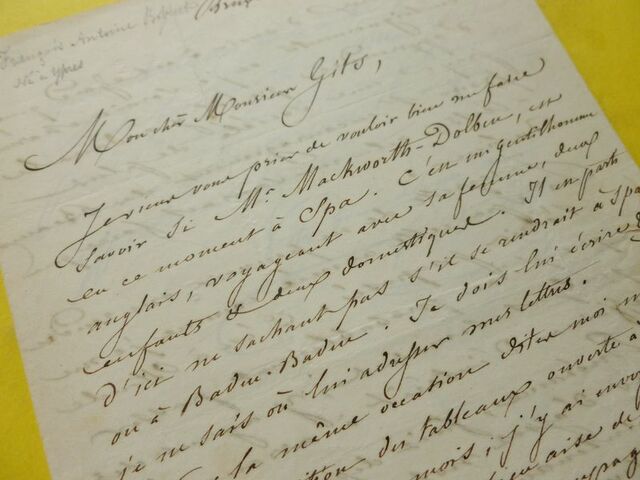 François Antoine
né à Ypres
Mon cher Monsieur Gits,
Je viens vous prier de vouloir bien me faire
savoir si Mr Mackworth-Dolben, est
en ce moment à Spa. C'est un gentilhomme
anglais, voyageant avec sa femme, deux
enfants & deux domestiques. Il est parti
d'ici ne sachant pas s'il se rendrait à Spa
ou à Baden-Baden. Je dois lui écrire &
je ne sais où lui adresser mes lettres.
la même occasion dites moi
des tableaux ouverte à
mois; j'y ai envoyé
aise de